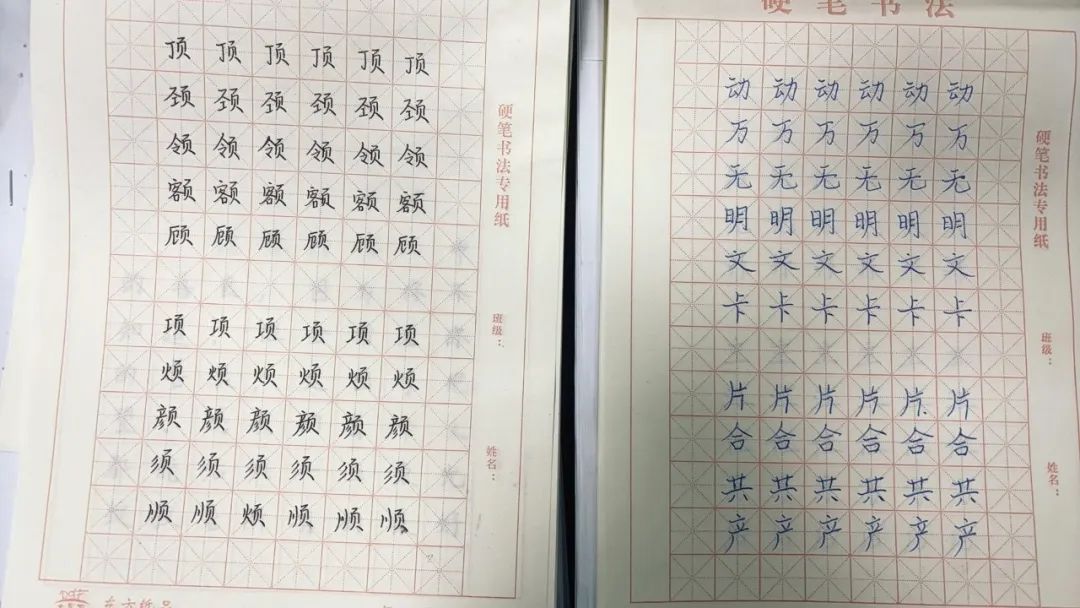 顶 顶 顶 顶 顶 顶
颈 颈 颈 颈 颈 颈
领 领 领 领 领 领
额 额 额 额 额 额
顾 顾 顾 顾 顾 顾
项 项 项 项 项 项
烦 烦 烦 烦 烦 烦
颜 颜 颜 颜 颜 颜
须 须 须 须 须 须
顺 顺 烦 顺 顺 顺
硬笔书法专用纸
班级：
姓名：
硬笔书法
动 动 动 动 动 动
万 万 万 万 万 万
无 无 无 无 无 无
明 明 明 明 明 明
文 文 文 文 文 文
卡 卡 卡 卡 卡 卡
片 片 片 片 片 片
合 合 合 合 合 合
共 共 共 共 共 共
产 产 产 产 产 产
硬笔书法专用纸
班级：
姓名：